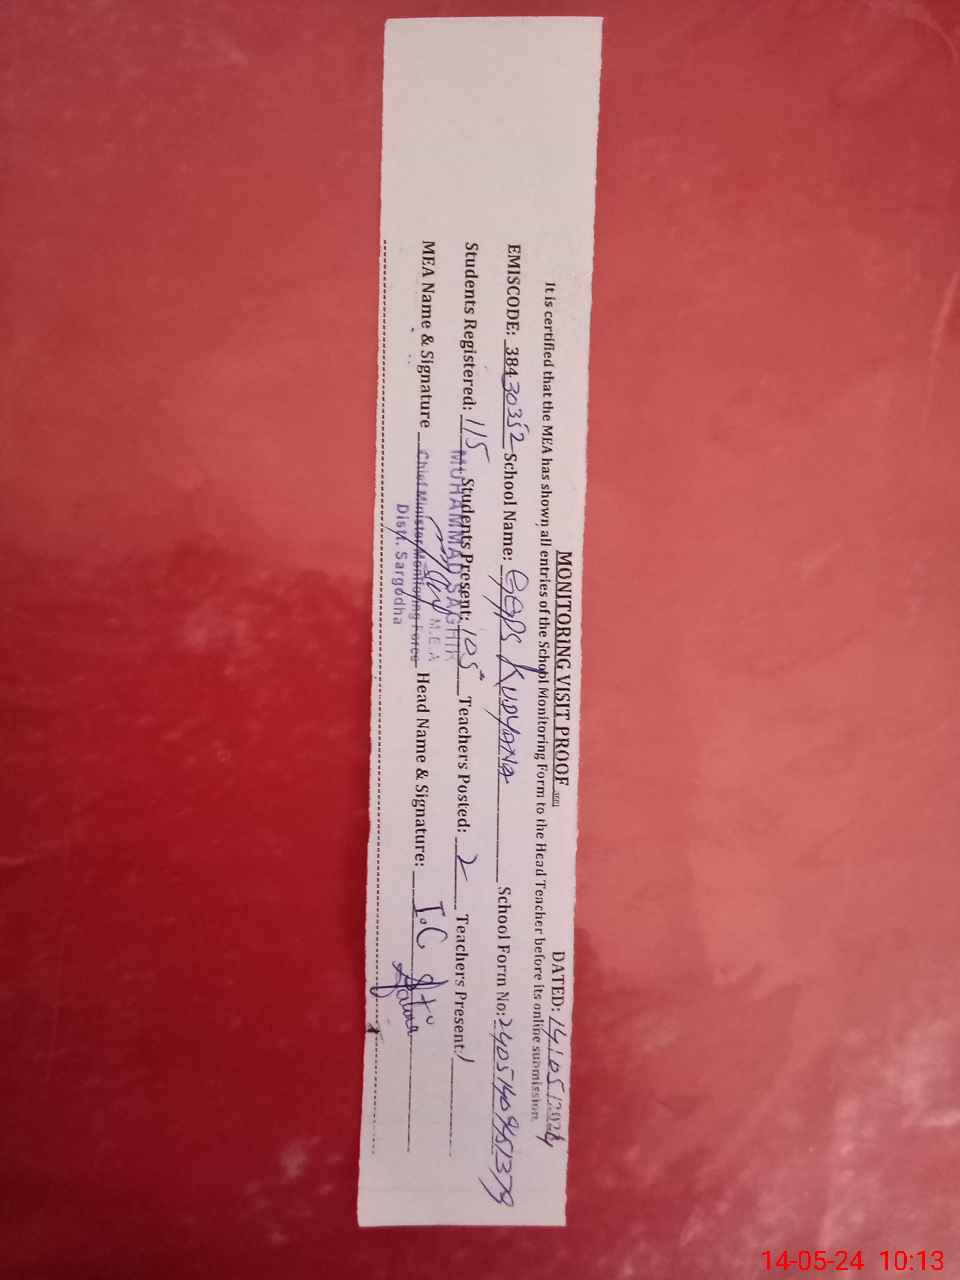 MONITORING VISIT PROOF
DATED: 14/05/2024
It is certified that the MEA has shown all entries of the School Monitoring Form to the Head Teacher before its online submission
EMISCODE: 38430352 School Name: GGPS KUDYANA School Form No: 
Students Registered: 115 Students Present: 105 Teachers Posted: 2 Teachers Present 1
MUHAMMAD SAGHIR
M.E.A
MEA Name & Signature Head Name & Signature: I.C
Chief Minister Monitoring Force
Distt. Sargodha
14-05-24 10:13